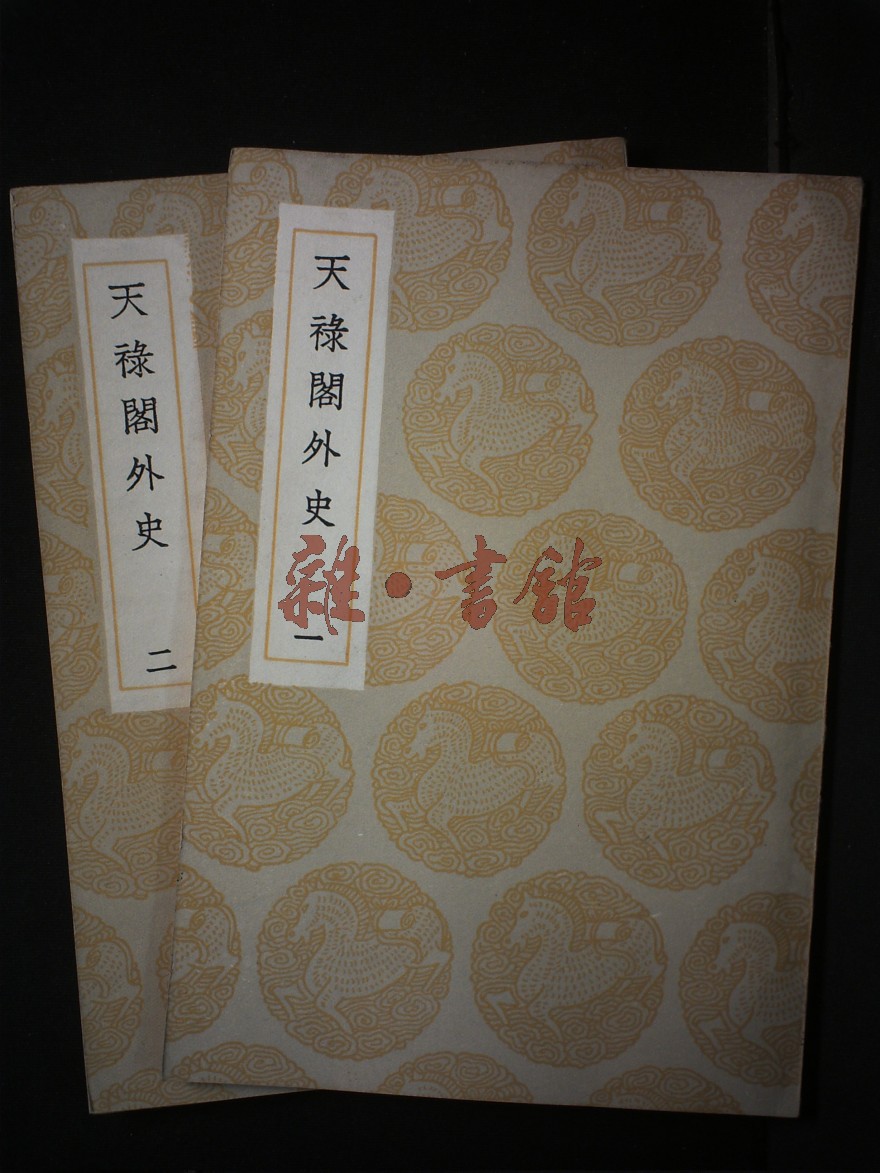 天祿閣外史
一
天祿閣外史
二
雜·書館